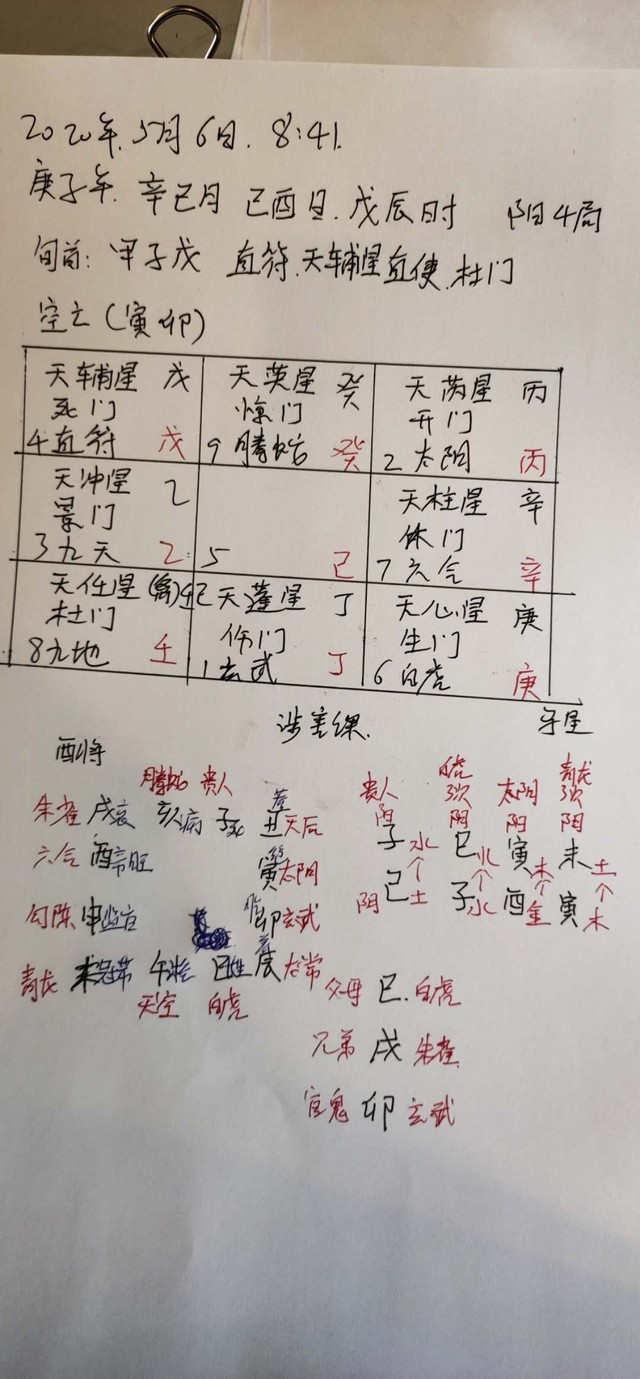 2020年.5月6日. 8:41.
庚子年. 辛巳月 己酉日. 戊辰时 阳4局
旬首: 甲子戊 直符.天辅星直使.杜门
空亡(寅卯)
天辅星 戊 天英星 癸 天芮星 丙
死门 惊门 开门
4直符 戊 9腾蛇 癸 2太阴 丙
天冲星 乙 天柱星 辛
景门 休门
3九天 乙 5 己 7六合 辛
天任星 壬 天蓬星 丁 天心星 庚
杜门 伤门 生门
8九地 壬 1玄武 丁 6白虎 庚
涉害课.
酉将
腾蛇 贵人 贵人 白虎 太阴 青龙
朱雀 戌衰 亥病 子死 丑天后 子水 巳火 寅木 未土
六合 酉帝旺 寅太阴 阴 己土 子水 酉金 寅木
勾陈 申临官 卯玄武
青龙 未冠带 午沐浴 巳生 辰 太常
天空 白虎
父母 巳.白虎
兄弟 戌 朱雀
官鬼 卯 玄武